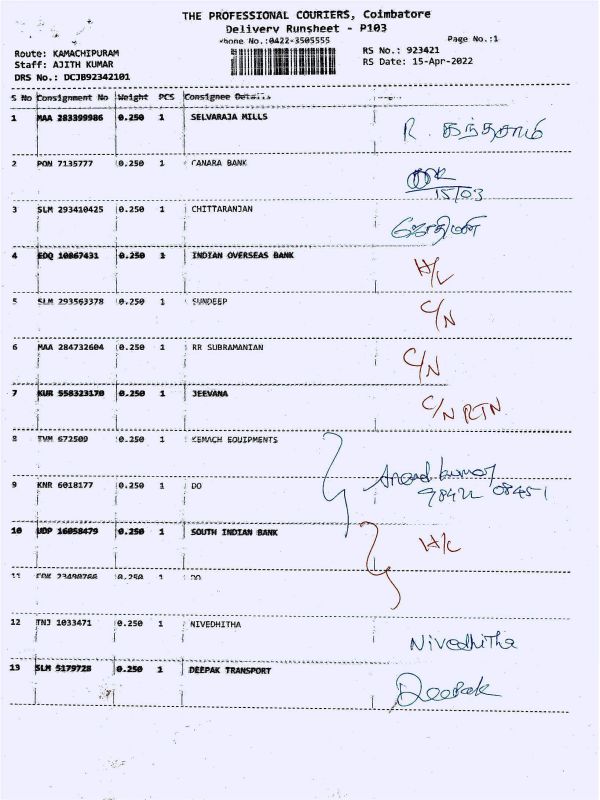 THE PROFESSIONAL COURIERS, Coimbatore
Delivery Runsheet - P103
Phone No.:0422-3505555
Page No.:1
Route: KAMACHIPURAM
RS No.: 923421
Staff: AJITH KUMAR
RS Date: 15-Apr-2022
DRS No.: DCJB92342101
S No Consignment No Weight PCS Consignee Details
1 MAA 283399986 0.250 1 SELVARAJA MILLS R. கந்தசாமி
2 PON 7135777 0.250 1 CANARA BANK
15/03
3 SLM 293410425 0.250 1 CHITTARANJAN ஜோதிமணி
4 EDQ 10867431 0.250 1 INDIAN OVERSEAS BANK H/L
5 SLM 293563378 0.250 1 SUNDEEP C/N
6 MAA 284732604 0.250 1 RR SUBRAMANIAN C/N
7 KUR 558323170 0.250 1 JEEVANA C/N RTN
8 TVM 672509 0.250 1 KEMACH EQUIPMENTS
Anand kumar
9 KNR 6018177 0.250 1 DO 98422 08451
10 UDP 16058479 0.250 1 SOUTH INDIAN BANK H/L
11 0.250 1 DO
12 TNJ 1033471 0.250 1 NIVEDHITHA Nivedhitha
13 SLM 5179728 0.250 1 DEEPAK TRANSPORT Deepak